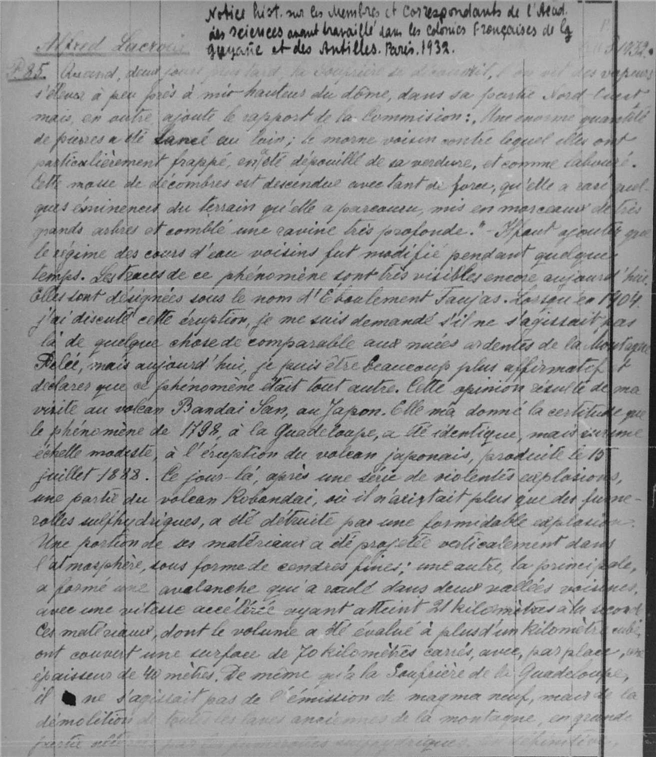 Notice hist. sur les Membres et Correspondants de l'Acad.
des Sciences ayant travaillé dans les colonies Françaises de la
Guyane et des Antilles. Paris. 1932.
Alfred Lacroix 1932.
P. 85. Quand, deux jours plus tard, la Soufrière se découvrit, l'on vit des vapeurs
s'élever à peu près à mi-hauteur du dôme, dans sa partie Nord-Ouest
mais, en outre, ajoute le rapport de la Commission: "Une énorme quantité
de pierres a été lancé au loin; le morne voisin contre lequel elles ont
particulièrement frappé, en été dépouillé de sa verdure, et comme labouré.
Cette masse de décombres est descendue avec tant de force, qu'elle a rasé quel-
ques éminences du terrain qu'elle a parcouru, mis en morceaux de très
grands arbres et comblé une ravine très profonde." Il faut ajouter que
le régime des cours d'eau voisins fut modifié pendant quelque
temps. Les traces de ce phénomène sont très visibles encore aujourd'hui.
Elles sont désignées sous le nom d'Eboulement Faujas. Lorsqu'en 1904
j'ai discuté cette éruption, je me suis demandé s'il ne s'agissait pas
là de quelque chose de comparable aux nuées ardentes de la Montagne
Pelée, mais aujourd'hui, je puis être beaucoup plus affirmatif et
déclarer que ce phénomène était tout autre. Cette opinion résulte de ma
visite au volcan Bandai San, au Japon. Elle m'a donné la certitude que
le phénomène de 1798, à la Guadeloupe, a été identique, mais sur une
échelle modeste, à l'éruption du volcan japonais, produite le 15
juillet 1888. Ce jour-là, après une série de violentes explosions,
une partie du volcan Kobandai, où il n'existait plus que des fume-
rolles sulfhydriques, a été détruite par une formidable explosion.
Une portion de ses matériaux a été projetée verticalement dans
l'atmosphère, sous forme de cendres fines; une autre, la principale,
a formé une avalanche qui a roulé dans deux vallées voisines,
avec une vitesse accélérée ayant atteint 21 kilomètres à la seconde
Ces matériaux, dont le volume a été évalué à plus d'un kilomètre cube,
ont couvert une surface de 70 kilomètres carrés, avec, par place, une
épaisseur de 40 mètres. De même qu'à la Soufrière de la Guadeloupe,
il ne s'agissait pas de l'émission de magma neuf, mais de la
démolition de toutes les laves anciennes de la montagne, en grande
partie par les fumerolles sulfhydriques.